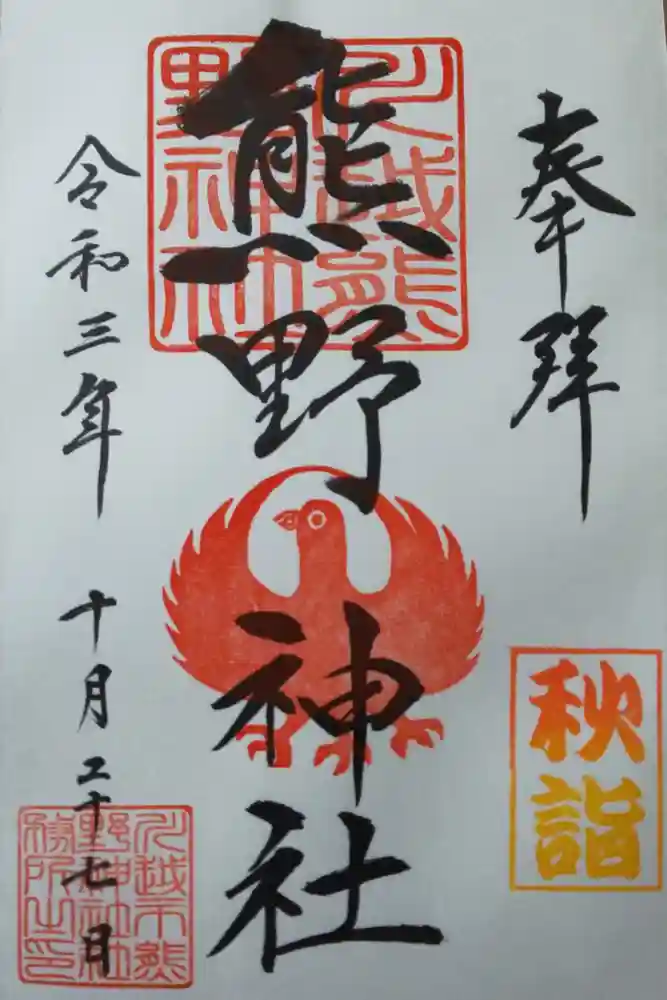 奉拝
秋詣
熊野神社
川越熊
野神社
令和三年 十月二十七日
川越市熊
野神社社
務所之印